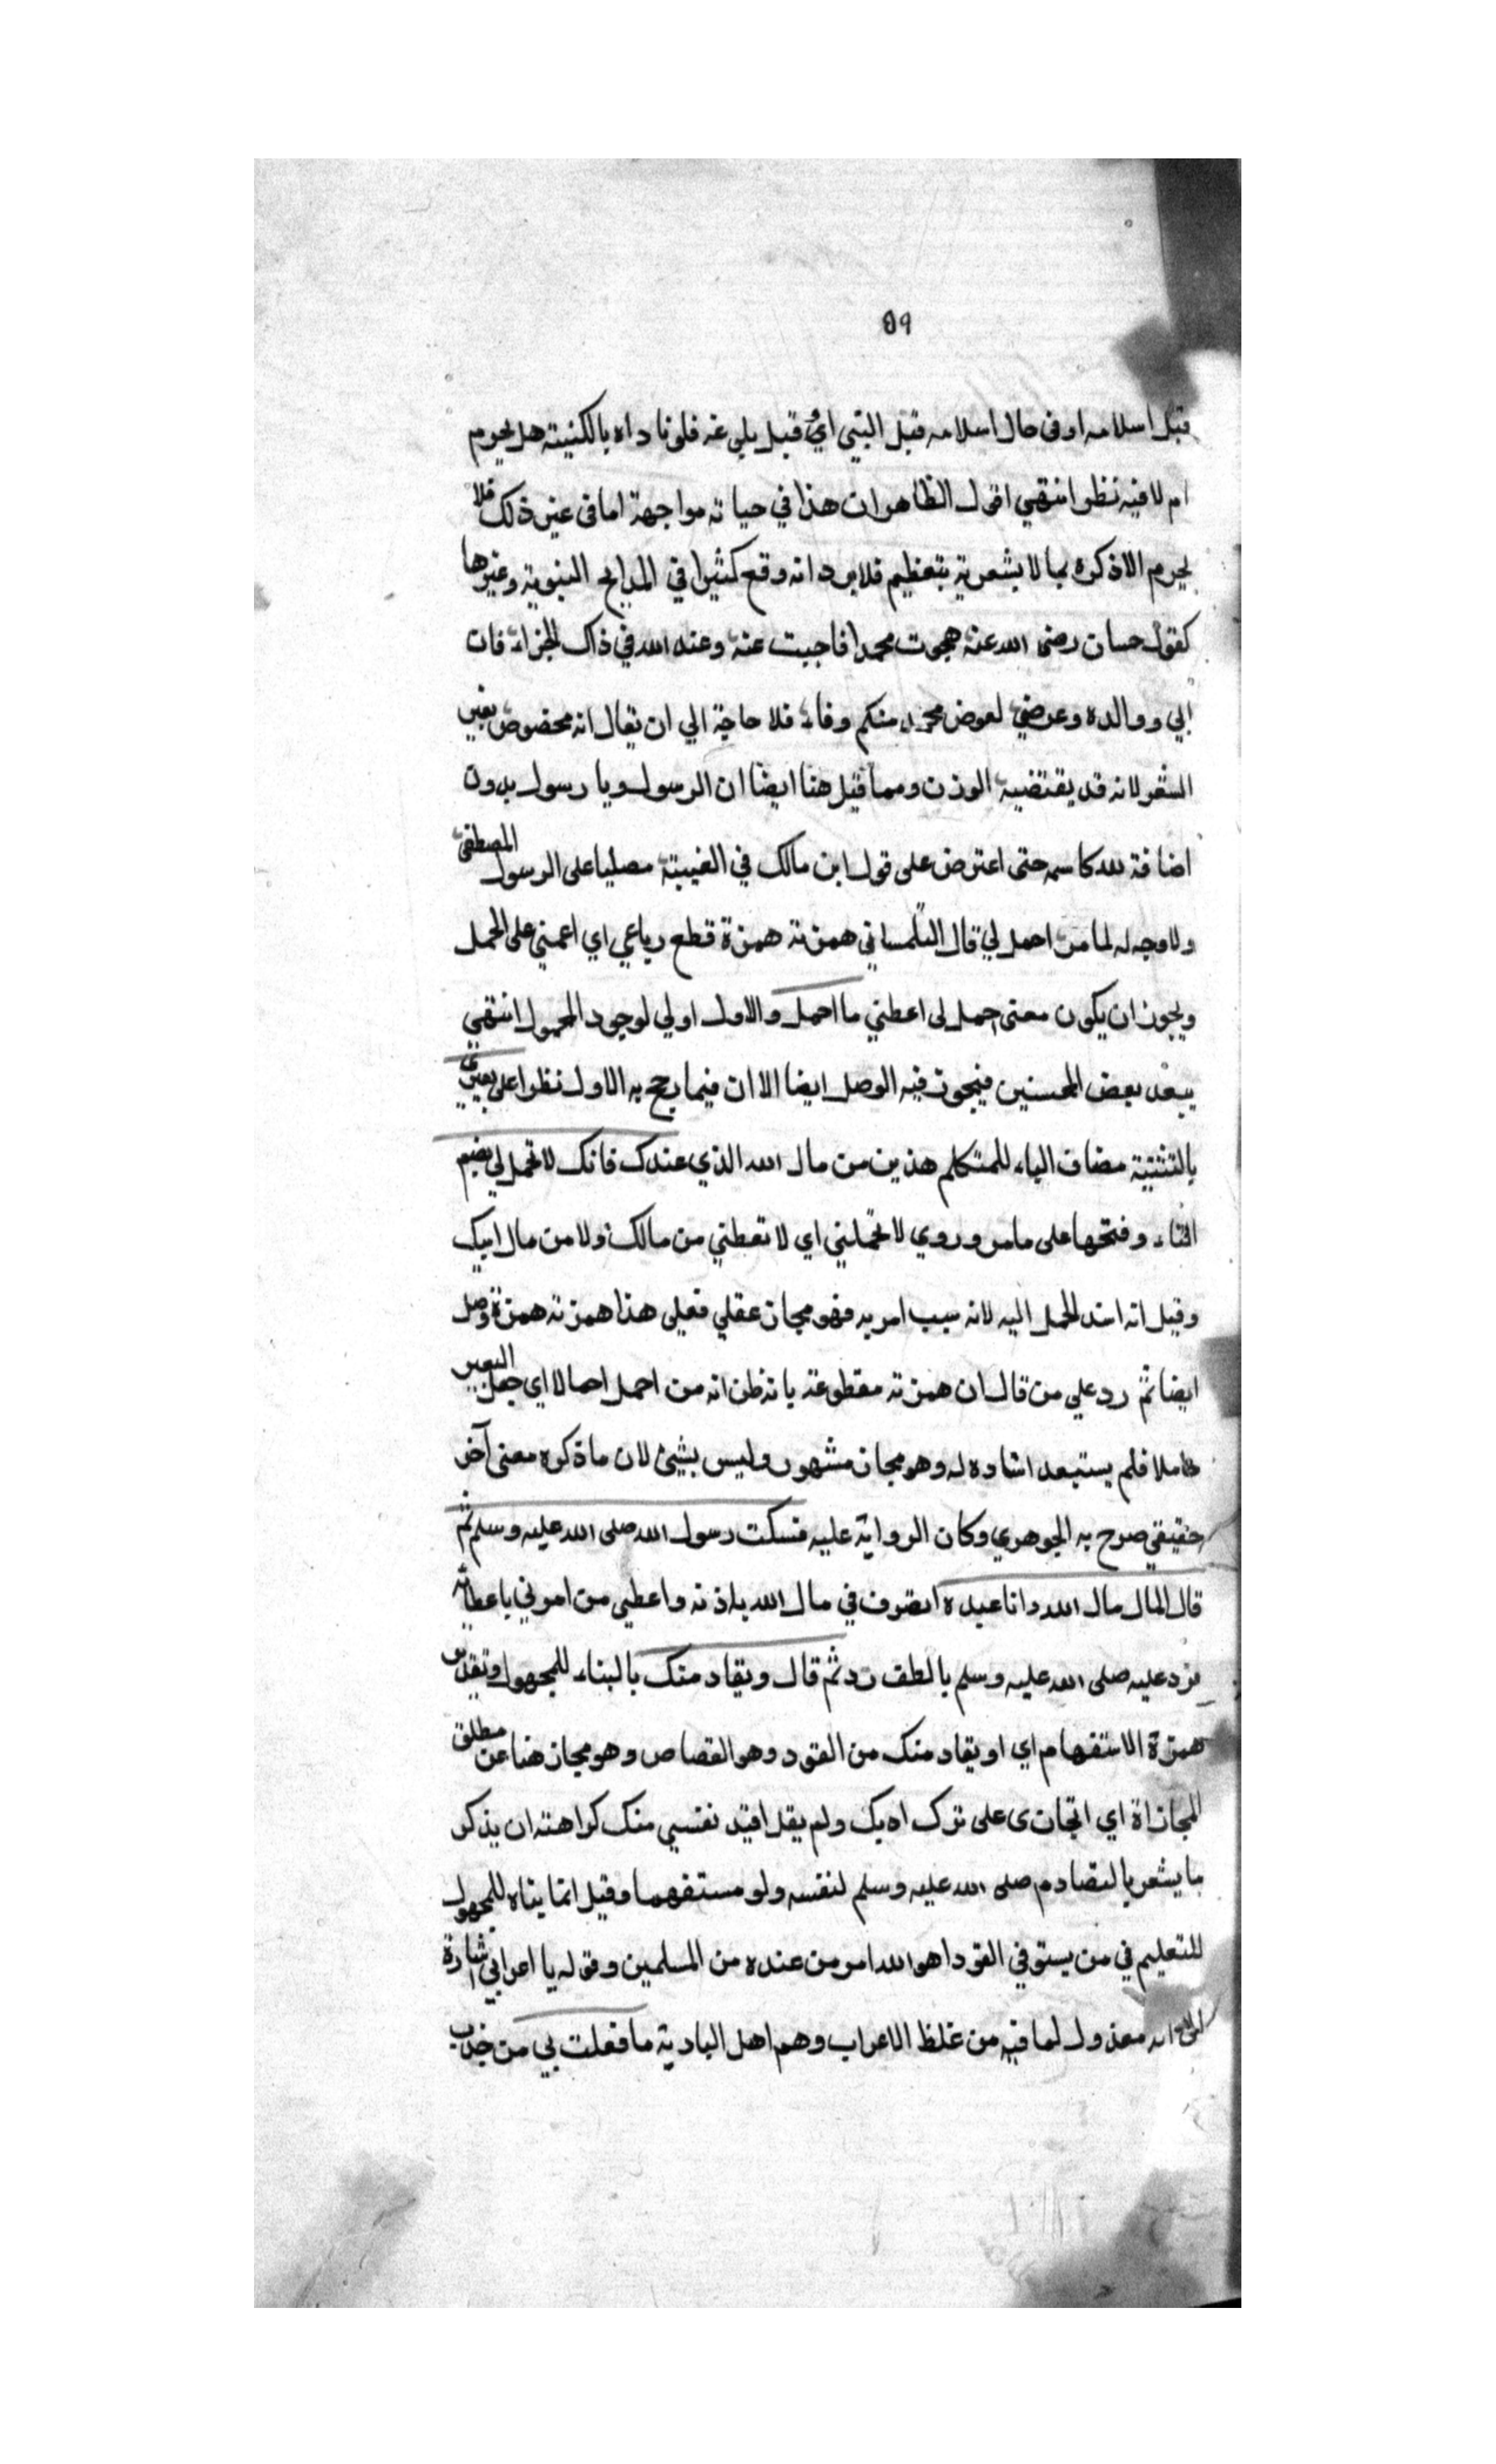 ٥٩
قبل اسلامه او في حال اسلامه قبل النبي اي قبل بلوغه فلو ناداه بالكنية هل يحرم
ام لا فيه نظر انتهي اقول الظاهر ان هذا في حياته مواجهة اما في غير ذلك فلا
يحرم الا ذكره بما لا يشعر به بتعظيم فلا يرد انه وقع كثيرا في المدايح النبوية وغيرها
كقول حسان رضي الله عنه هجوت محمدا فاجبت عنه وعند الله في ذاك الجزاء فان
ابي ووالده وعرضي لعرض محمد منكم وفاء فلا حاجة الي ان يقال انه مخصوص بغير
الشعر لانه قد يقتضيه الوزن ومما قيل هنا ايضا ان الرسول ويا رسول بدون
اضافة لله كاسمه حتى اعترض على قول ابن مالك في الفيته مصليا على الرسول المصطفى
ولا وجه له لما مر احمل لي قال التلمساني همزته همزة قطع رباعي اي اعمني على الحمل
ويجوز ان يكون معنى احمل لى اعطني ما احمل والاول اولي لوجود المحمول انتهي
يبعد بعض المحسنين فيجوز فيه الوصل ايضا الا ان فيما رجح به الاول نظرا على بعيري
بالتثنية مضاف الياء للمتكلم هذين من مال الله الذي عندك فانك لا تحمل لي بضم
التاء وفتحها على ما مر وروي لا تحملني اي لا تعطني من مالك ولا من مال ابيك
وقيل انه اسند الحمل اليه لانه سبب امر به فهو مجاز عقلي فعلى هذا همزته همزة وصل
ايضا ثم رد علي من قال ان همزته مقطوعة بانه ظن انه من احمل احمالا اي جعل البعير
حاملا فلم يستبعد اسناده له وهو مجاز مشهور وليس بشيئ لان ما ذكره معنى آخر
حقيقي صرح به الجوهري وكان الرواية عليه فسكت رسول الله صلى الله عليه وسلم ثم
قال المال مال الله وانا عبده اتصرف في مال الله باذنه واعطي من امرني باعطائه
فرد عليه صلى الله عليه وسلم بالطف رد ثم قال ويقاد منك بالبناء للمجهول وتقدير
همزة الاستفهام اي او يقاد منك من القود وهو القصاص وهو مجاز هنا عن مطلق
المجازاة اي اتجازى على ترك ادبك ولم يقل اقيد نفسي منك كراهته ان يذكر
ما يشعر بالتصادم صلى الله عليه وسلم لنفسه ولو مستفهما وقيل انما بناه للمجهول
للتعليم في من يستوفي القود اهو الله امر من عنده من المسلمين وقوله يا اعرابي اشارة
انه معذول لما فيه من غلظ الاعراب وهم اهل البادية ما فعلت بي من جذب